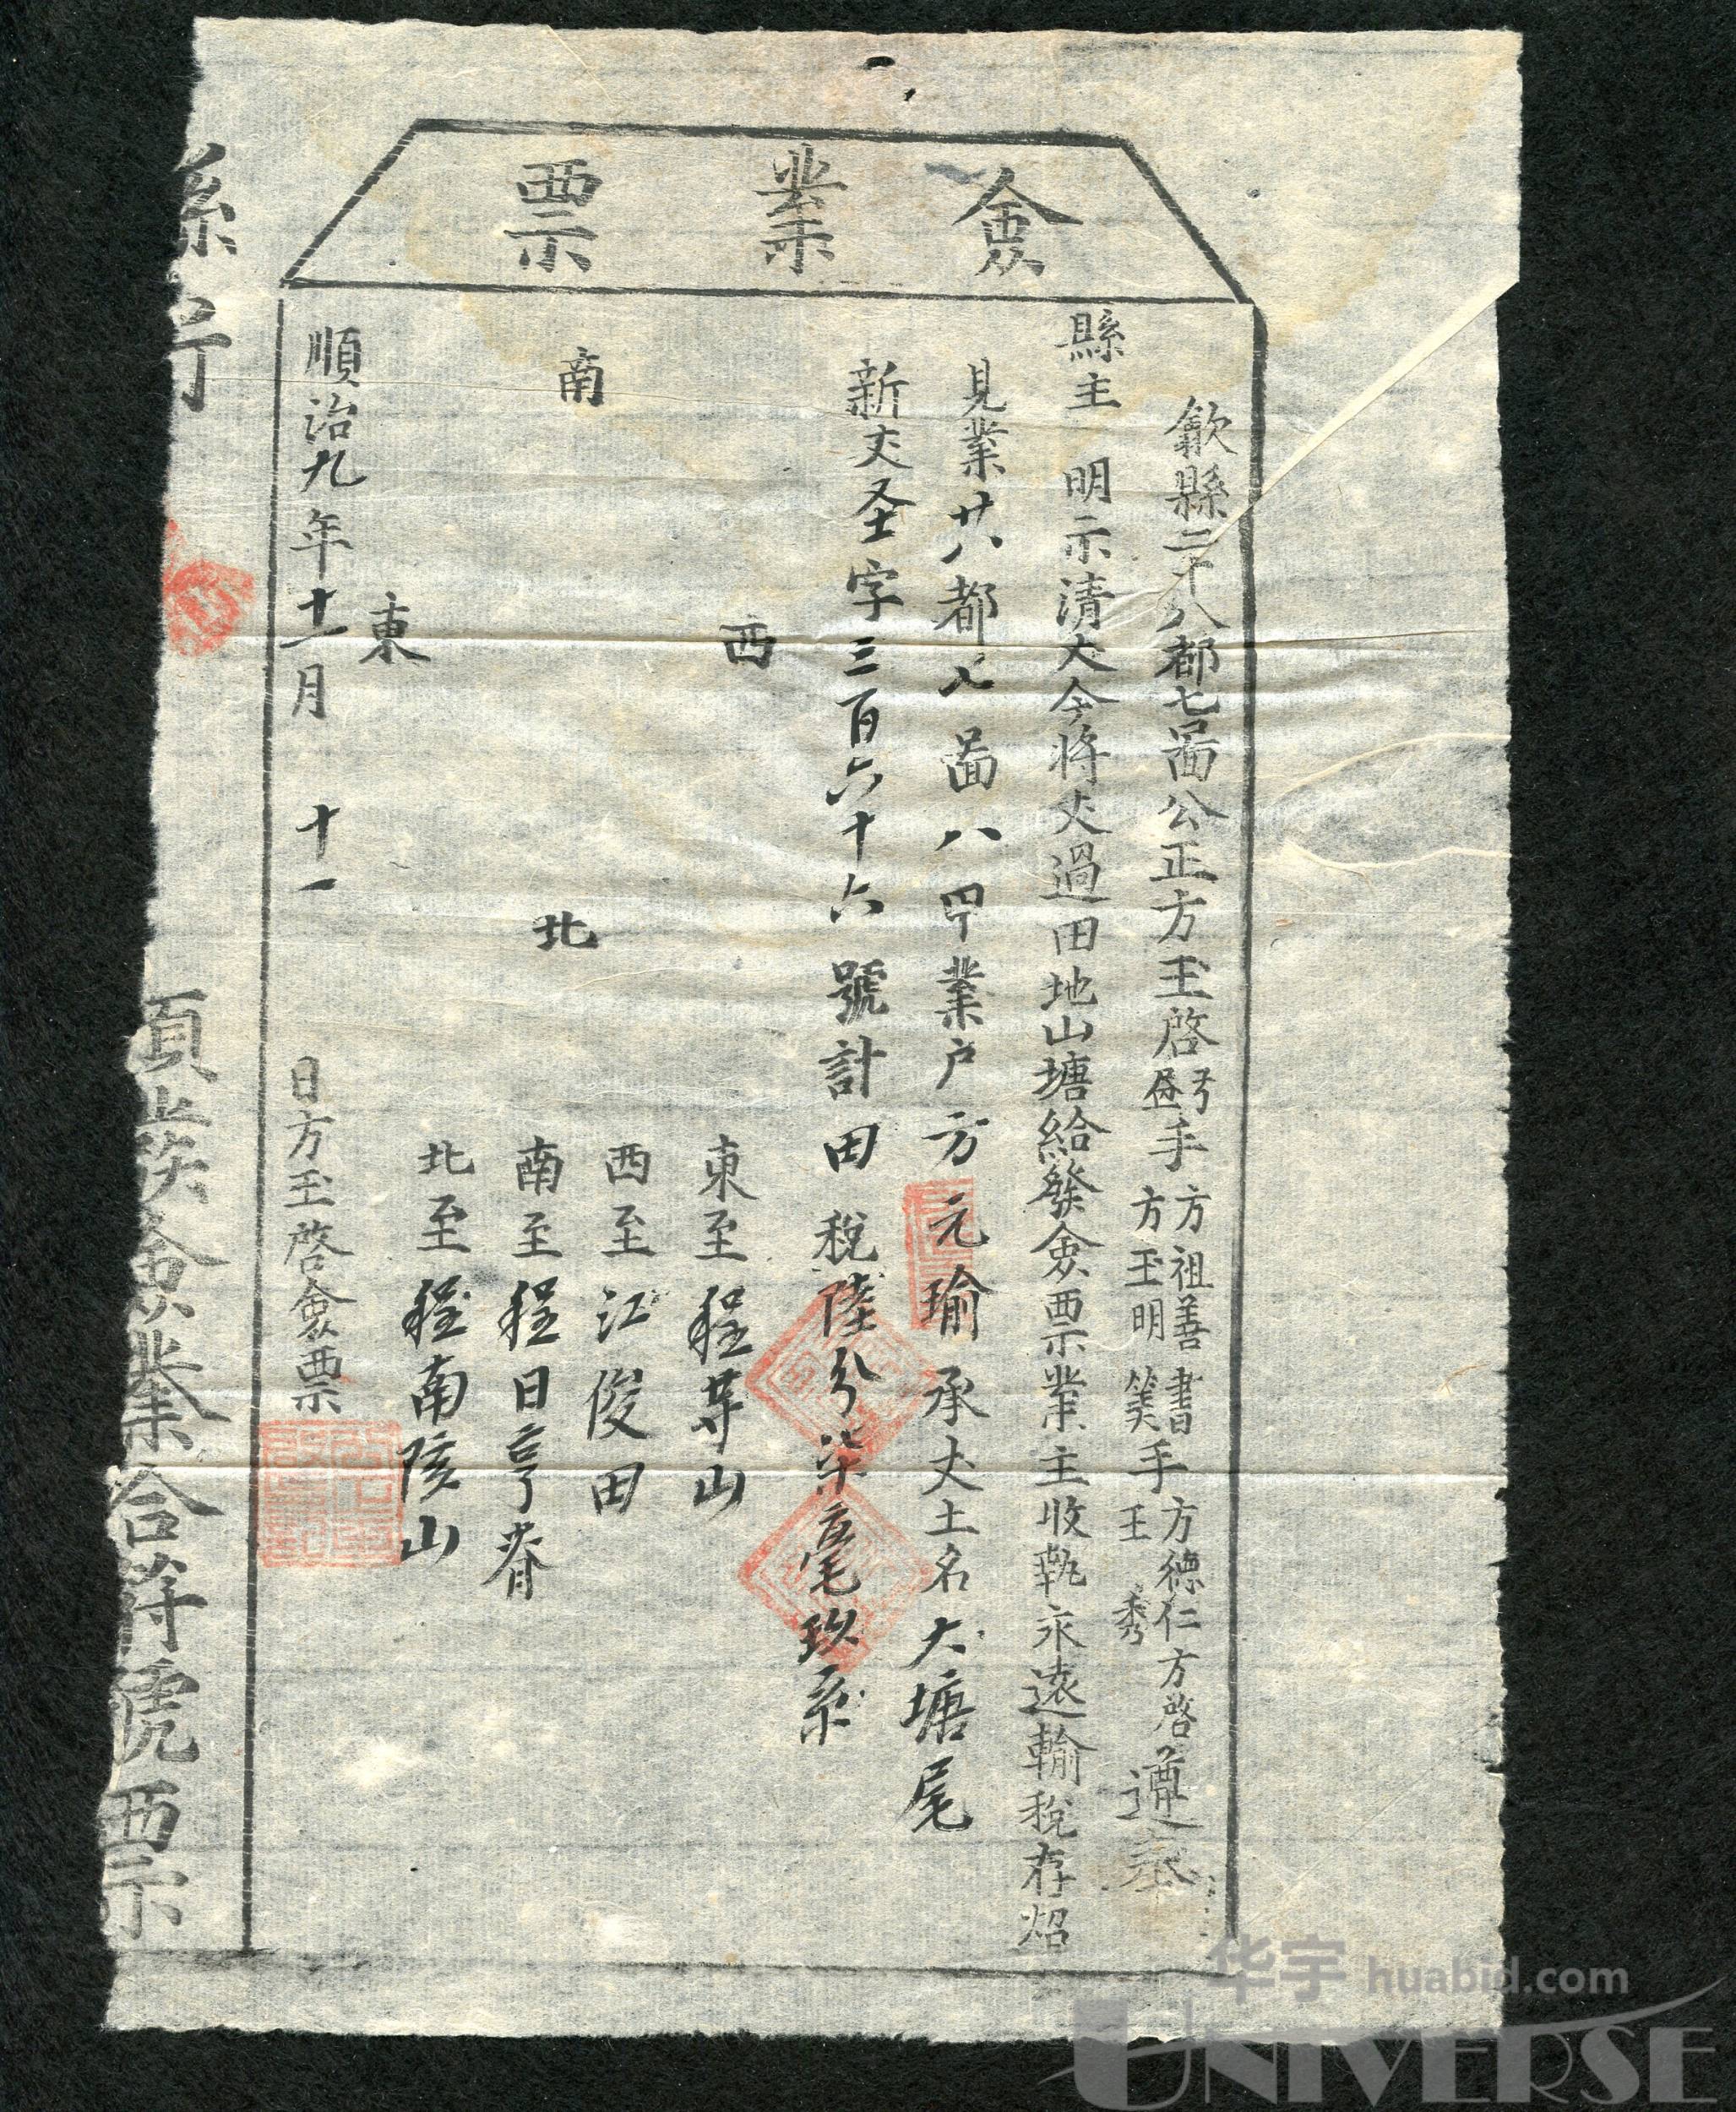 僉業票
歙縣二十八都七啚公正方玉啓弓手方祖善書手方德仁方啓遵奉
啚手方玉明筭手王秀
縣主明示清丈今將丈過田地山塘給發僉票業主收執永遠輸稅存炤
見業廿八都七啚八甲業户方元瑜承丈土名大塘尾
新丈圣字三百六十六號計田稅陸分柒毫玖系
西
東至程尊山
西至江俊田
南
北
南至程日亨脊
北至程南陔山
東
順治九年十一月十一日方玉啓僉票
縣行
須業僉業合符號票
华宇 huabid.com
UNIVERSE